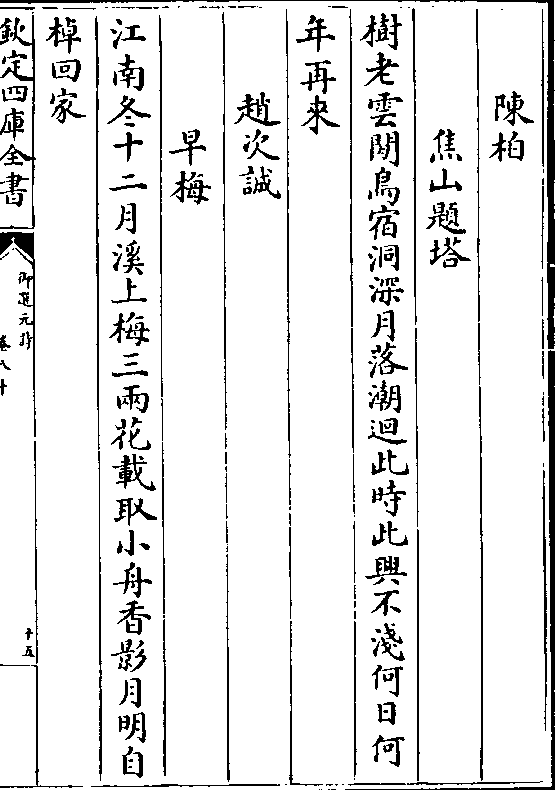 陳柏
焦山題塔
樹老雲閑鳥宿洞深月落潮迴此時此興不淺何日何
年再來
趙次誠
早梅
江南冬十二月溪上梅三兩花載取小舟香影月明自
棹回家
欽定四庫全書
御選元詩
卷八十
十五